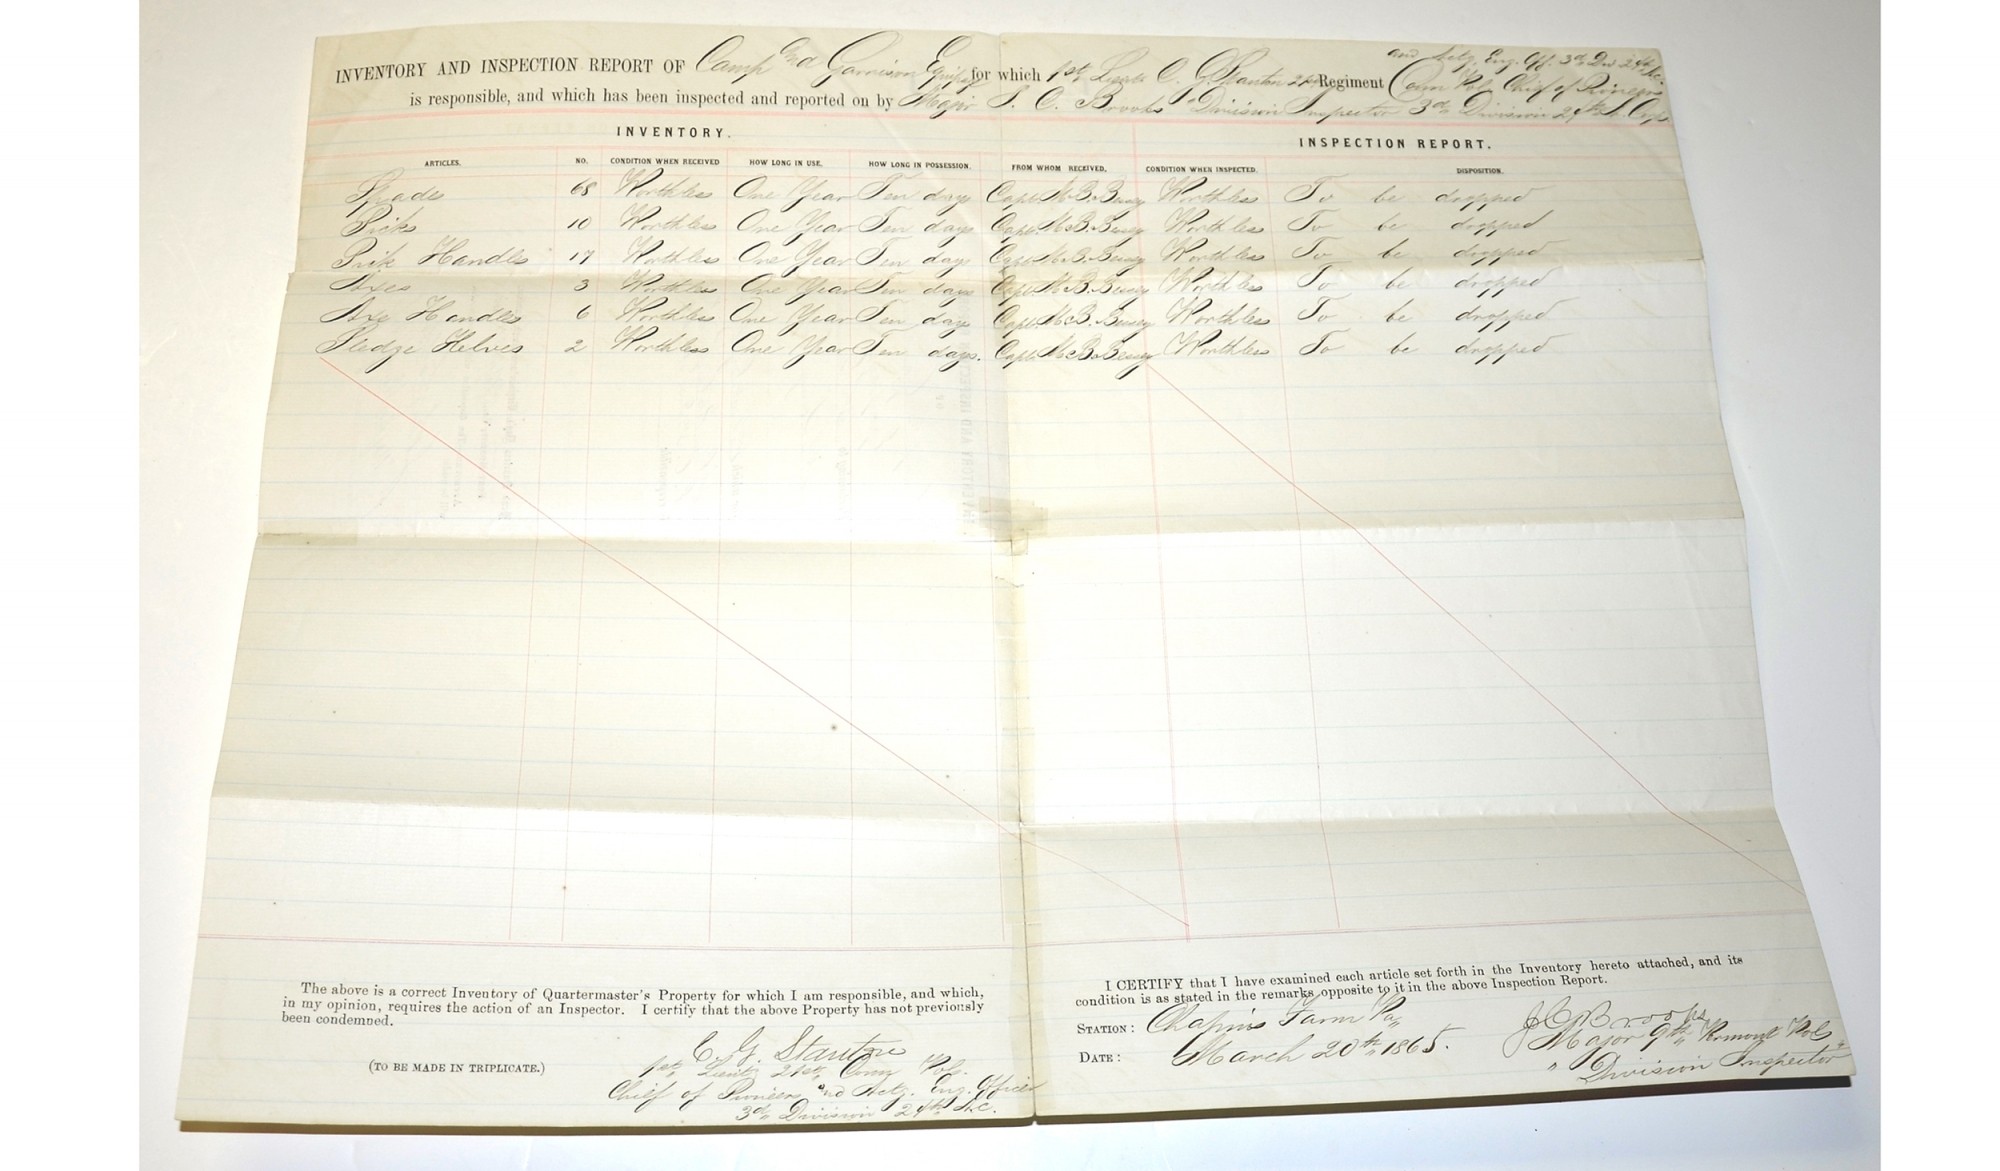 INVENTORY AND INSPECTION REPORT OF Camp and Garrison Equipg for which 1st Lieut C. G. Stanton 21st Regiment and Actg. Eng. Off. 3rd Div 24th A.C.
Conn Vol Chief of Pioneers
is responsible, and which has been inspected and reported on by Major J. C. Brooks Division Inspector 3rd Division 24th A. Corps.
INVENTORY. INSPECTION REPORT.
ARTICLES. NO. CONDITION WHEN RECEIVED HOW LONG IN USE. HOW LONG IN POSSESSION. FROM WHOM RECEIVED. CONDITION WHEN INSPECTED. DISPOSITION.
Spades 68 Worthless One Year Ten days Capt. Worthless To be dropped
Picks 10 Worthless One Year Ten days Capt. Worthless To be dropped
Pick Handles 17 Worthless One Year Ten days Capt. Worthless To be dropped
Axes 3 Worthless One Year Ten days Capt. Worthless To be dropped
Axe Handles 6 Worthless One Year Ten days Capt. Worthless To be dropped
Sledge Helves 2 Worthless One Year Ten days. Capt. Worthless To be dropped
The above is a correct Inventory of Quartermaster's Property for which I am responsible, and which,
in my opinion, requires the action of an Inspector. I certify that the above Property has not previously
been condemned.
(TO BE MADE IN TRIPLICATE.)
C. G. Stanton
1st Lieut 21st Conn Vols.
Chief of Pioneers and Actg. Eng. Officer
3rd Division 24th A.C.
I CERTIFY that I have examined each article set forth in the Inventory hereto attached, and its
condition is as stated in the remarks opposite to it in the above Inspection Report.
STATION: Chapins Farm Va,
DATE: March 20th 1865.
J C Brooks
Major 9th Vermont Vols
" Division Inspector